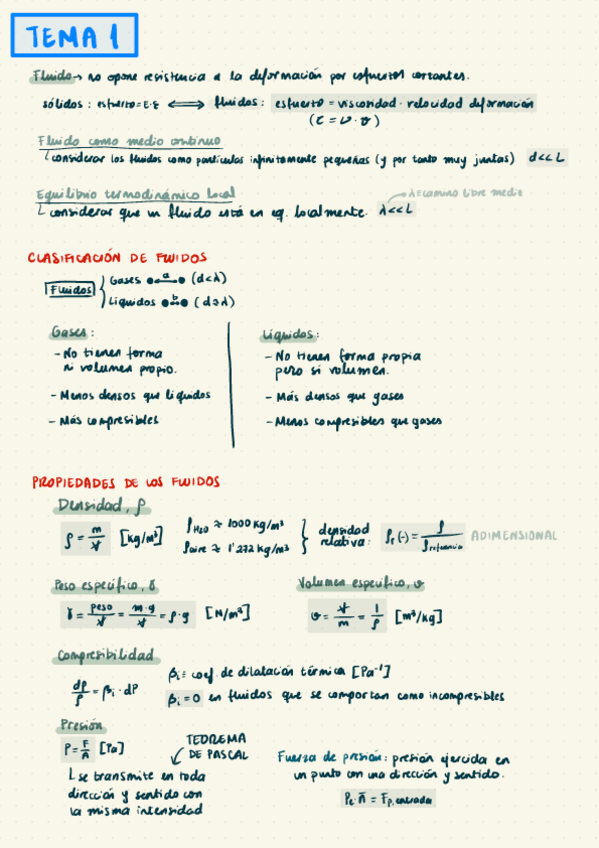 TEMA 1
Fluido → no opone resistencia a la deformación por esfuerzos cortantes.
sólidos: esfuerzo = E·ε ⟺ fluidos: esfuerzo = viscosidad · velocidad deformación
(τ = υ · v)
Fluido como medio continuo
considerar los fluidos como partículas infinitamente pequeñas (y por tanto muy juntas) d<<L
λ = camino libre medio
Equilibrio termodinámico local
considerar que un fluido está en eq. localmente. λ<<L
CLASIFICACIÓN DE FLUIDOS
Fluidos
Gases a (d<λ)
Líquidos b (d≥λ)
Gases:
- No tienen forma
ni volumen propio.
- Menos densos que líquidos
- Más compresibles
Líquidos:
- No tienen forma propia
pero sí volumen.
- Más densos que gases
- Menos compresibles que gases
PROPIEDADES DE LOS FLUIDOS
Densidad, ρ
ρ = m/V [kg/m³]
ρH₂O ≈ 1000 kg/m³
ρaire ≈ 1'222 kg/m³
densidad
relativa: ρr (-) = ρ/ρreferencia ADIMENSIONAL
Peso específico, γ
γ = peso/V = m·g/V = ρ·g [N/m³]
Volumen específico, v
v = V/m = 1/ρ [m³/kg]
Compresibilidad
dρ/ρ = βi · dP
βi = coef. de dilatación térmica [Pa⁻¹]
βi = 0 en fluidos que se comportan como incompresibles
Presión
P = F/A [Pa]
TEOREMA
DE PASCAL
se transmite en toda
dirección y sentido con
la misma intensidad
Fuerza de presión: presión ejercida en
un punto con una dirección y sentido.